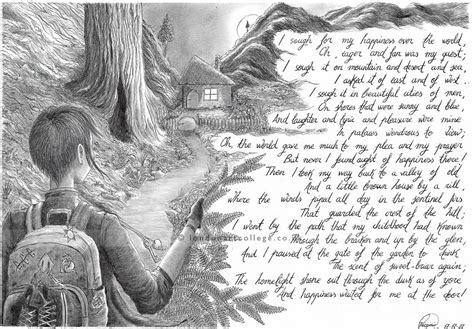 I sough for my happiness over the world,
Oh, eager and far was my quest;
I sough it on mountain and desert and sea,
I asked it of east and of west.
I sough it in beautiful cities of men,
On shores that were sunny and blue,
And laughter and lyric and pleasure were mine
In palaces wondrous to view;
Oh, the world gave me much to my plea and my prayer
But never I found aught of happiness there!
Then I took my way back to a valley of old
And a little brown house by a rill,
Where the winds piped all day in the sentinel firs
That guarded the crest of the hill;
I went by the path that my childhood had known
Through the bracken and up by the glen,
And I paused at the gate of the garden to drink
The scent of sweet-briar again;
The homelight shone out through the dusk as of yore
And happiness waited for me at the door!
© londonartcollege.co.uk